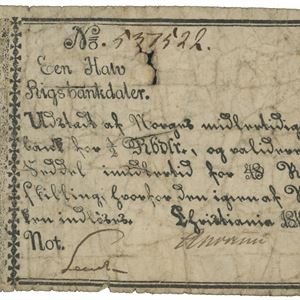 No. 537522.
Een Halv
Rigsbankdaler.
Udstædt af Norges midlertidig
bank for ½ Rbdlr., og validerer
Seddel imidlertid for 48 R
skilling, hvorfor den igjen af N
ken indløses. Christiania 18
Not.